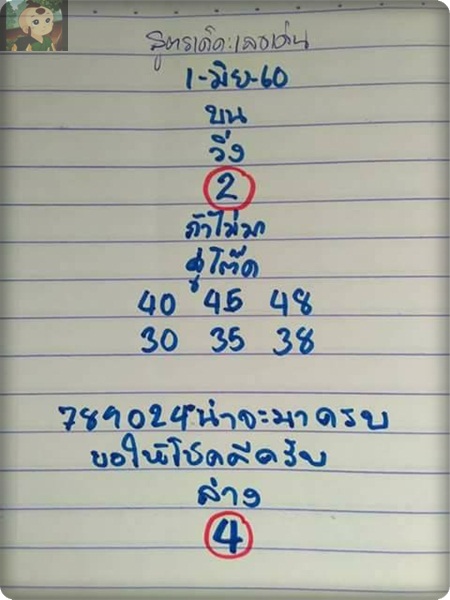 สูตรเด็ดเลขเด่น
1-มิย-60
บน
วิ่ง
2
ถ้าไม่มา
คู่โต๊ด
40 45 48
30 35 38
789024 น่าจะมาครบ
ขอให้โชคดีครับ
ล่าง
4